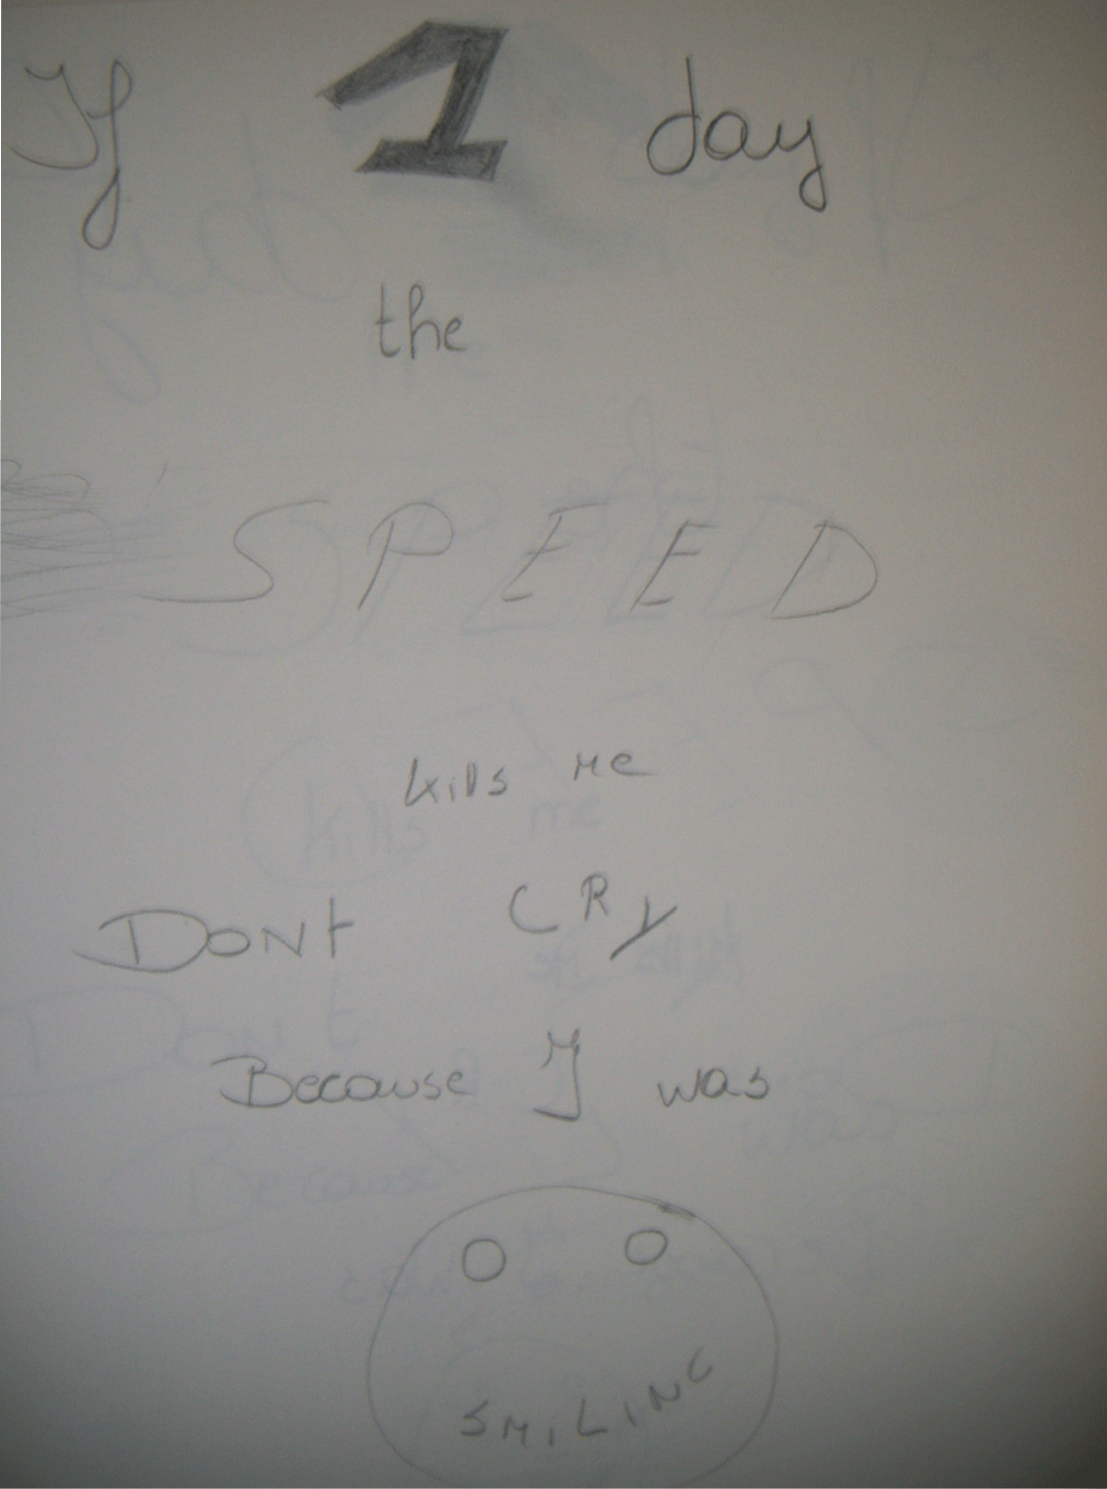 If 1 day
the
SPEED
kills me
DONt CRy
Because I was
SMiLING